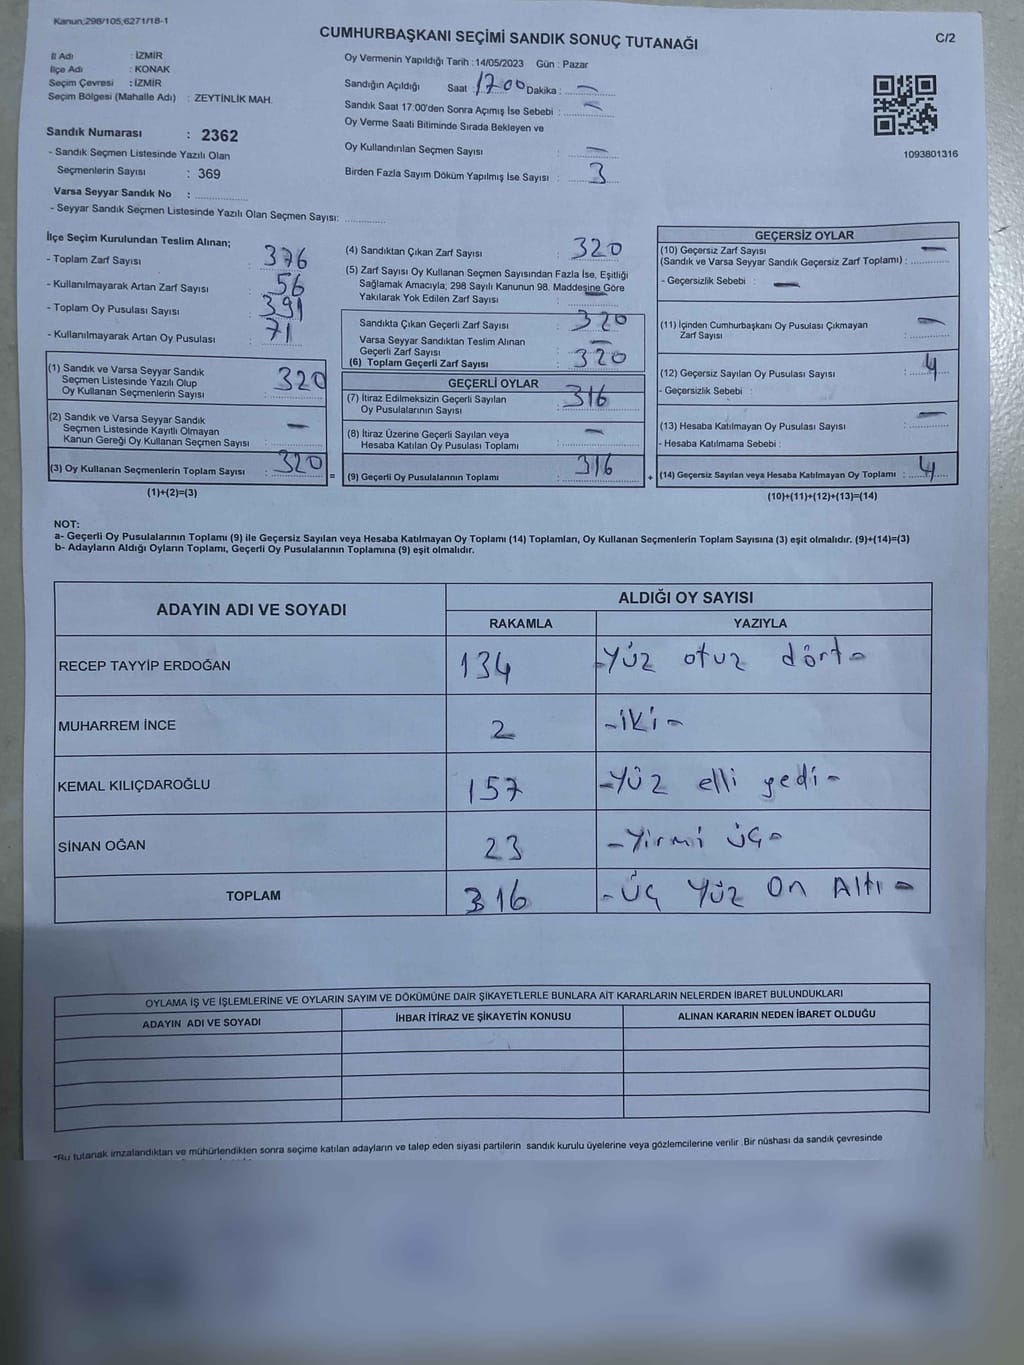 Kanun;298/105,6271/18-1
CUMHURBAŞKANI SEÇİMİ SANDIK SONUÇ TUTANAĞI
C/2
İl Adı : İZMİR
İlçe Adı : KONAK
Seçim Çevresi : İZMİR
Seçim Bölgesi (Mahalle Adı) : ZEYTİNLİK MAH.
Sandık Numarası : 2362
- Sandık Seçmen Listesinde Yazılı Olan
Seçmenlerin Sayısı : 369
Varsa Seyyar Sandık No :
- Seyyar Sandık Seçmen Listesinde Yazılı Olan Seçmen Sayısı:
Oy Vermenin Yapıldığı Tarih : 14/05/2023 Gün : Pazar
Sandığın Açıldığı Saat : 1700 Dakika : —
Sandık Saat 17:00'den Sonra Açımış İse Sebebi : —
Oy Verme Saati Bitiminde Sırada Bekleyen ve
Oy Kullandırılan Seçmen Sayısı : —
Birden Fazla Sayım Döküm Yapılmış İse Sayısı : 3
1093801316
İlçe Seçim Kurulundan Teslim Alınan;
- Toplam Zarf Sayısı : 376
- Kullanılmayarak Artan Zarf Sayısı : 56
- Toplam Oy Pusulası Sayısı : 391
- Kullanılmayarak Artan Oy Pusulası : 71
(1) Sandık ve Varsa Seyyar Sandık
Seçmen Listesinde Yazılı Olup
Oy Kullanan Seçmenlerin Sayısı : 320
(2) Sandık ve Varsa Seyyar Sandık
Seçmen Listesinde Kayıtlı Olmayan
Kanun Gereği Oy Kullanan Seçmen Sayısı : —
(3) Oy Kullanan Seçmenlerin Toplam Sayısı : 320
(1)+(2)=(3)
(4) Sandıktan Çıkan Zarf Sayısı : 320
(5) Zarf Sayısı Oy Kullanan Seçmen Sayısından Fazla İse, Eşitliği
Sağlamak Amacıyla, 298 Sayılı Kanunun 98. Maddesine Göre
Yakılarak Yok Edilen Zarf Sayısı : —
Sandıkta Çıkan Geçerli Zarf Sayısı : 320
Varsa Seyyar Sandıktan Teslim Alınan
Geçerli Zarf Sayısı : —
(6) Toplam Geçerli Zarf Sayısı : 320
GEÇERLİ OYLAR
(7) İtiraz Edilmeksizin Geçerli Sayılan
Oy Pusulalarının Sayısı : 316
(8) İtiraz Üzerine Geçerli Sayılan veya
Hesaba Katılan Oy Pusulası Toplamı : —
= (9) Geçerli Oy Pusulalarının Toplamı : 316
GEÇERSİZ OYLAR
(10) Geçersiz Zarf Sayısı —
(Sandık ve Varsa Seyyar Sandık Geçersiz Zarf Toplamı) :
- Geçersizlik Sebebi : —
(11) İçinden Cumhurbaşkanı Oy Pusulası Çıkmayan
Zarf Sayısı : —
(12) Geçersiz Sayılan Oy Pusulası Sayısı : 4
- Geçersizlik Sebebi :
(13) Hesaba Katılmayan Oy Pusulası Sayısı : —
- Hesaba Katılmama Sebebi :
+ (14) Geçersiz Sayılan veya Hesaba Katılmayan Oy Toplamı : 4
(10)+(11)+(12)+(13)=(14)
NOT:
a- Geçerli Oy Pusulalarının Toplamı (9) ile Geçersiz Sayılan veya Hesaba Katılmayan Oy Toplamı (14) Toplamları, Oy Kullanan Seçmenlerin Toplam Sayısına (3) eşit olmalıdır. (9)+(14)=(3)
b- Adayların Aldığı Oyların Toplamı, Geçerli Oy Pusulalarının Toplamına (9) eşit olmalıdır.
ADAYIN ADI VE SOYADI
ALDIĞI OY SAYISI
RAKAMLA YAZIYLA
RECEP TAYYİP ERDOĞAN 134 -Yüz otuz dört-
MUHARREM İNCE 2 -iki-
KEMAL KILIÇDAROĞLU 157 -Yüz elli yedi-
SİNAN OĞAN 23 -Yirmi üç-
TOPLAM 316 -Üç Yüz On Altı-
OYLAMA İŞ VE İŞLEMLERİNE VE OYLARIN SAYIM VE DÖKÜMÜNE DAİR ŞİKAYETLERLE BUNLARA AİT KARARLARIN NELERDEN İBARET BULUNDUKLARI
ADAYIN ADI VE SOYADI İHBAR İTİRAZ VE ŞİKAYETİN KONUSU ALINAN KARARIN NEDEN İBARET OLDUĞU
*Bu tutanak imzalandıktan ve mühürlendikten sonra seçime katılan adayların ve talep eden siyasi partilerin sandık kurulu üyelerine veya gözlemcilerine verilir .Bir nüshası da sandık çevresinde